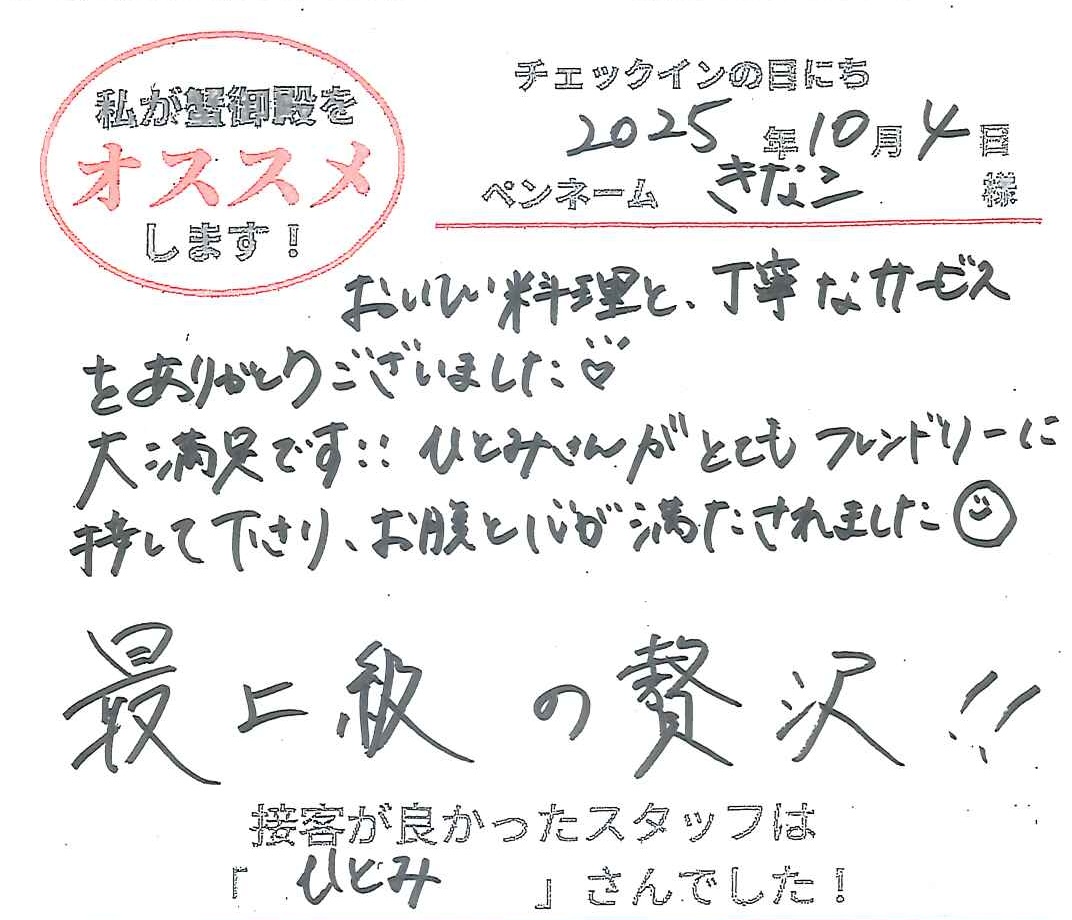 私が蟹御殿を
オススメ
します！
チェックインの日にち
2025年10月4日
ペンネーム きなこ 様
おいしい料理と、丁寧なサービス
をありがとうございました♡
大満足です!! ひとみさんがとてもフレンドリーに
接して下さり、お腹と心が満たされました☺
最上級の贅沢!!
接客が良かったスタッフは
「ひとみ」さんでした！